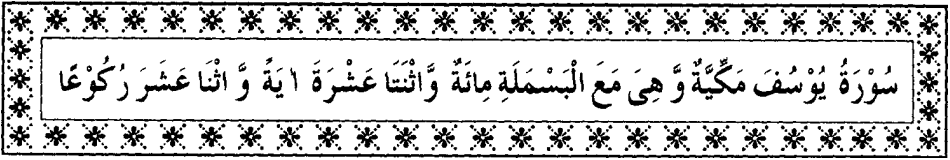 سُوْرَةُ يُوْسُفَ مَكِّيَّةٌ وَّ هِىَ مَعَ الْبَسْمَلَةِ مِائَةٌ وَّاثْنَتَا عَشْرَةَ اٰيَةً وَّ اثْنَا عَشَرَ رُكُوْعًا